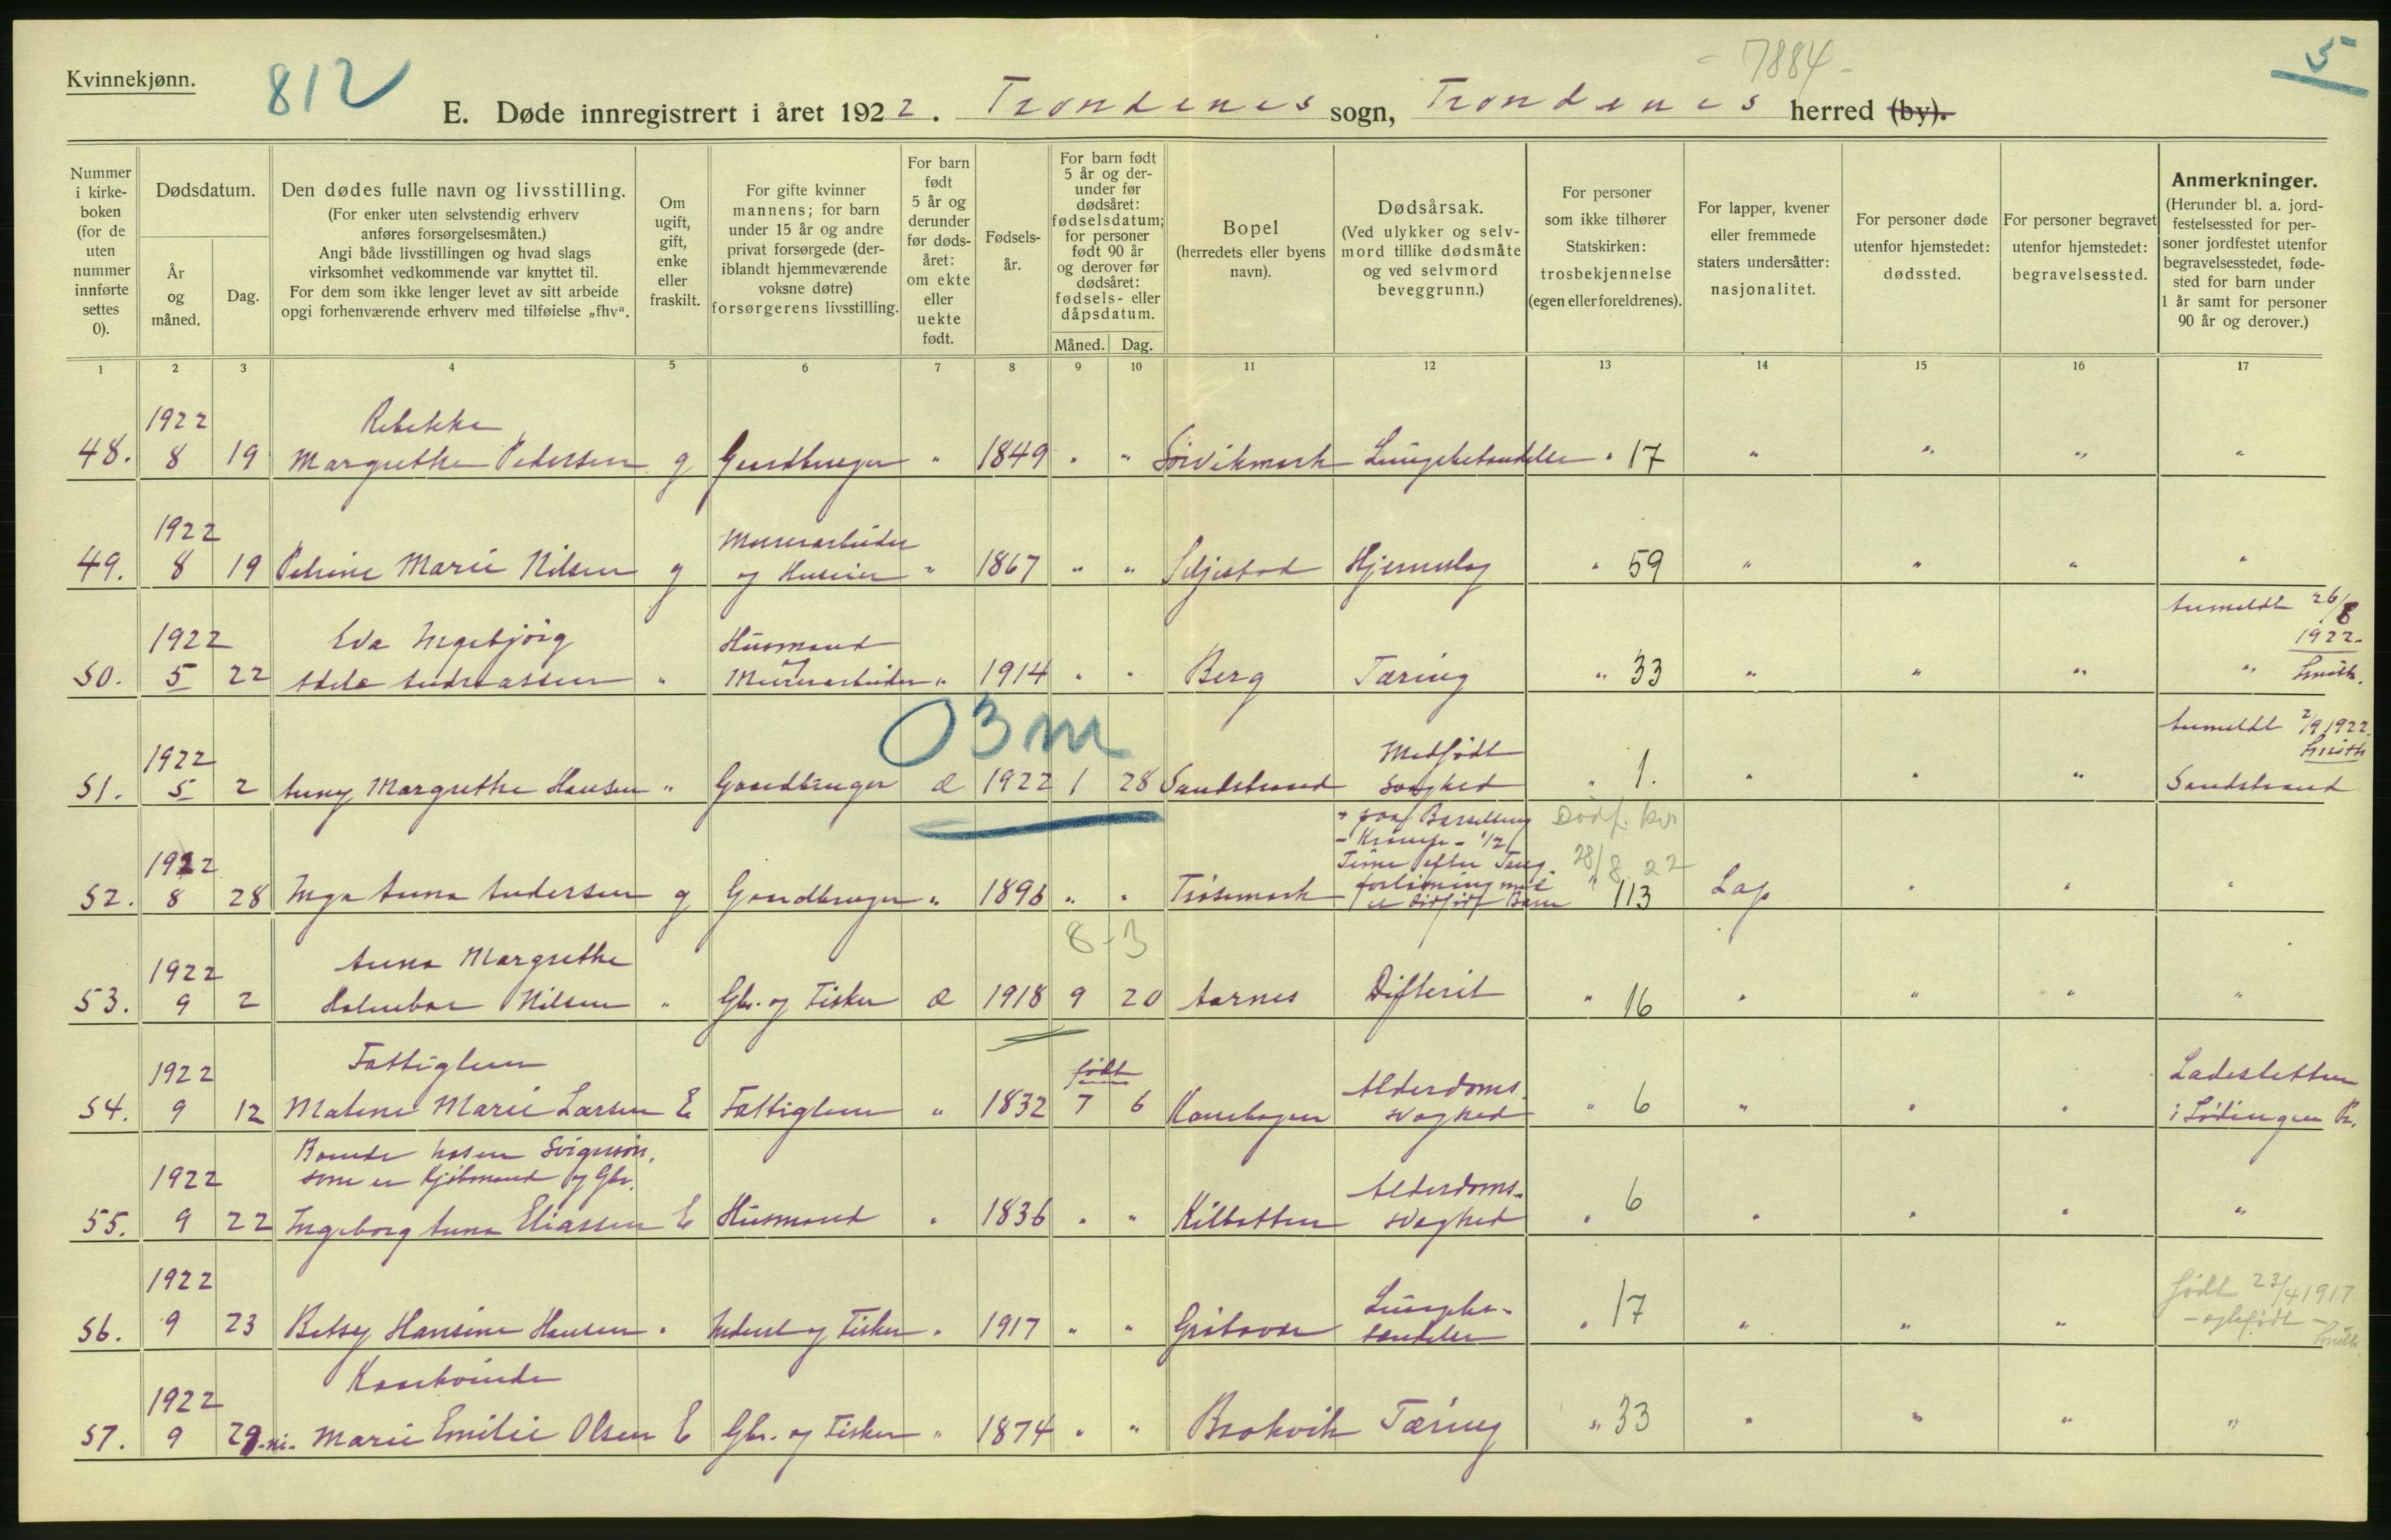 Kvinnekjønn.
812
- 7884 -
5
E. Døde innregistrert i året 1922. Trondenes sogn, Trondenes herred (by).
Nummer i kirke-boken (for de uten nummer innførte settes 0).
Dødsdatum.
År og måned.
Dag.
Den dødes fulle navn og livsstilling.
(For enker uten selvstendig erhverv anføres forsørgelsesmåten.)
Angi både livsstillingen og hvad slags virksomhet vedkommende var knyttet til.
For dem som ikke lenger levet av sitt arbeide opgi forhenværende erhverv med tilføielse „fhv“.
Om ugift, gift, enke eller fraskilt.
For gifte kvinner mannens; for barn under 15 år og andre privat forsørgede (deriblandt hjemmeværende voksne døtre) forsørgerens livsstilling.
For barn født 5 år og derunder før dødsåret: om ekte eller uekte født.
Fødsels-år.
For barn født 5 år og derunder før dødsåret: fødselsdatum; for personer født 90 år og derover før dødsåret: fødsels- eller dåpsdatum.
Måned. Dag.
Bopel (herredets eller byens navn).
Dødsårsak.
(Ved ulykker og selvmord tillike dødsmåte og ved selvmord beveggrunn.)
For personer som ikke tilhører Statskirken: trosbekjennelse (egen eller foreldrenes).
For lapper, kvener eller fremmede staters undersåtter: nasjonalitet.
For personer døde utenfor hjemstedet: dødssted.
For personer begravet utenfor hjemstedet: begravelsessted.
Anmerkninger.
(Herunder bl. a. jordfestelsessted for personer jordfestet utenfor begravelsesstedet, fødested for barn under 1 år samt for personer 90 år og derover.)
1 2 3 4 5 6 7 8 9 10 11 12 13 14 15 16 17
1922 Rebekka
48. 8 19 Margrethe Pedersen g Gaardbruger " 1849 " " Sørvikmark Lungebetændelse " 17 " " " "
1922 Murerarbeider
49. 8 19 Petrine Marie Nilsen g og Huseier " 1867 " " Seljestad Hjerneslag " 59 " " " "
1922 Eva Ingebjørg Husmand Anmeldt 26/8 1922
50. 5 22 Adela Andreassen " Murerarbeider " 1914 " " Berg Tæring " 33 " " " " Smith.
03m
1922 Medfødt Anmeldt 2/9 1922 Smith
51. 5 2 Anny Margrethe Hansen " Gaardbruger Æ 1922 1 28 Sandstrand svaghed " 1. " " " Sandstrand
Barselseng Dødf. kv.
- Krampe - 1/2
1922 Time efter Tang 28/8 22
forløsning med
52. 8 28 Inga Anna Andersen g Gaardbruger " 1896 " " Trøsemark et dødfødt Barn " 113 Lap " " "
8-3
1922 Anna Margrethe
53. 9 2 Nilsen " Gbr. og Fisker Æ 1918 9 20 Aarnes Difterit " 16 " " " "
1922 Fattiglem født Alderdoms- Ladesletten
54. 9 12 Malene Marie Larsen E Fattiglem " 1832 7 6 Kanebogen svaghed " 6 " " " i Lødingen P.
som er Kjøbmand og Gbr.
1922 Alderdoms-
55. 9 22 Ingeborg Anna Eliassen E Husmand " 1836 " " Kilbotten svaghed " 6 " " " "
1922 Lungebe- født 23/4 1917
- egtefødt -
56. 9 23 Betsy Hansine Hansen " Inderst og Fisker " 1917 " " Grøtavær tændelse " 17 " " " Smith
1922 Kaarkvinde
57. 9 29-ni- Marie Emilie Olsen E Gbr. og Fisker " 1874 " " Brokvik Tæring " 33 " " " "